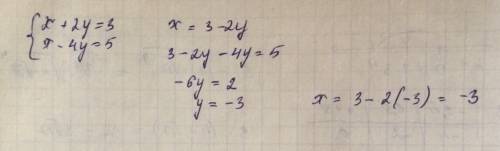 x + 2y = 3
x - 4y = 5
x = 3 - 2y
3 - 2y - 4y = 5
-6y = 2
y = -3
x = 3 - 2(-3) = -3